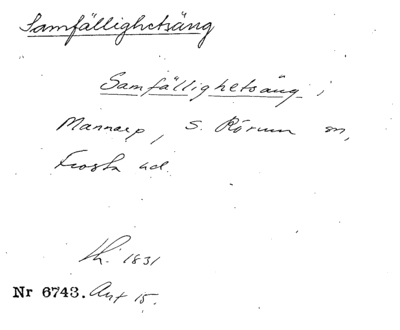 Samfällighetsäng
Samfällighetsäng i
Mannarp, S. Rörum sn,
Frosta hd.
th. 1831
Nr 6743. Ant 15.